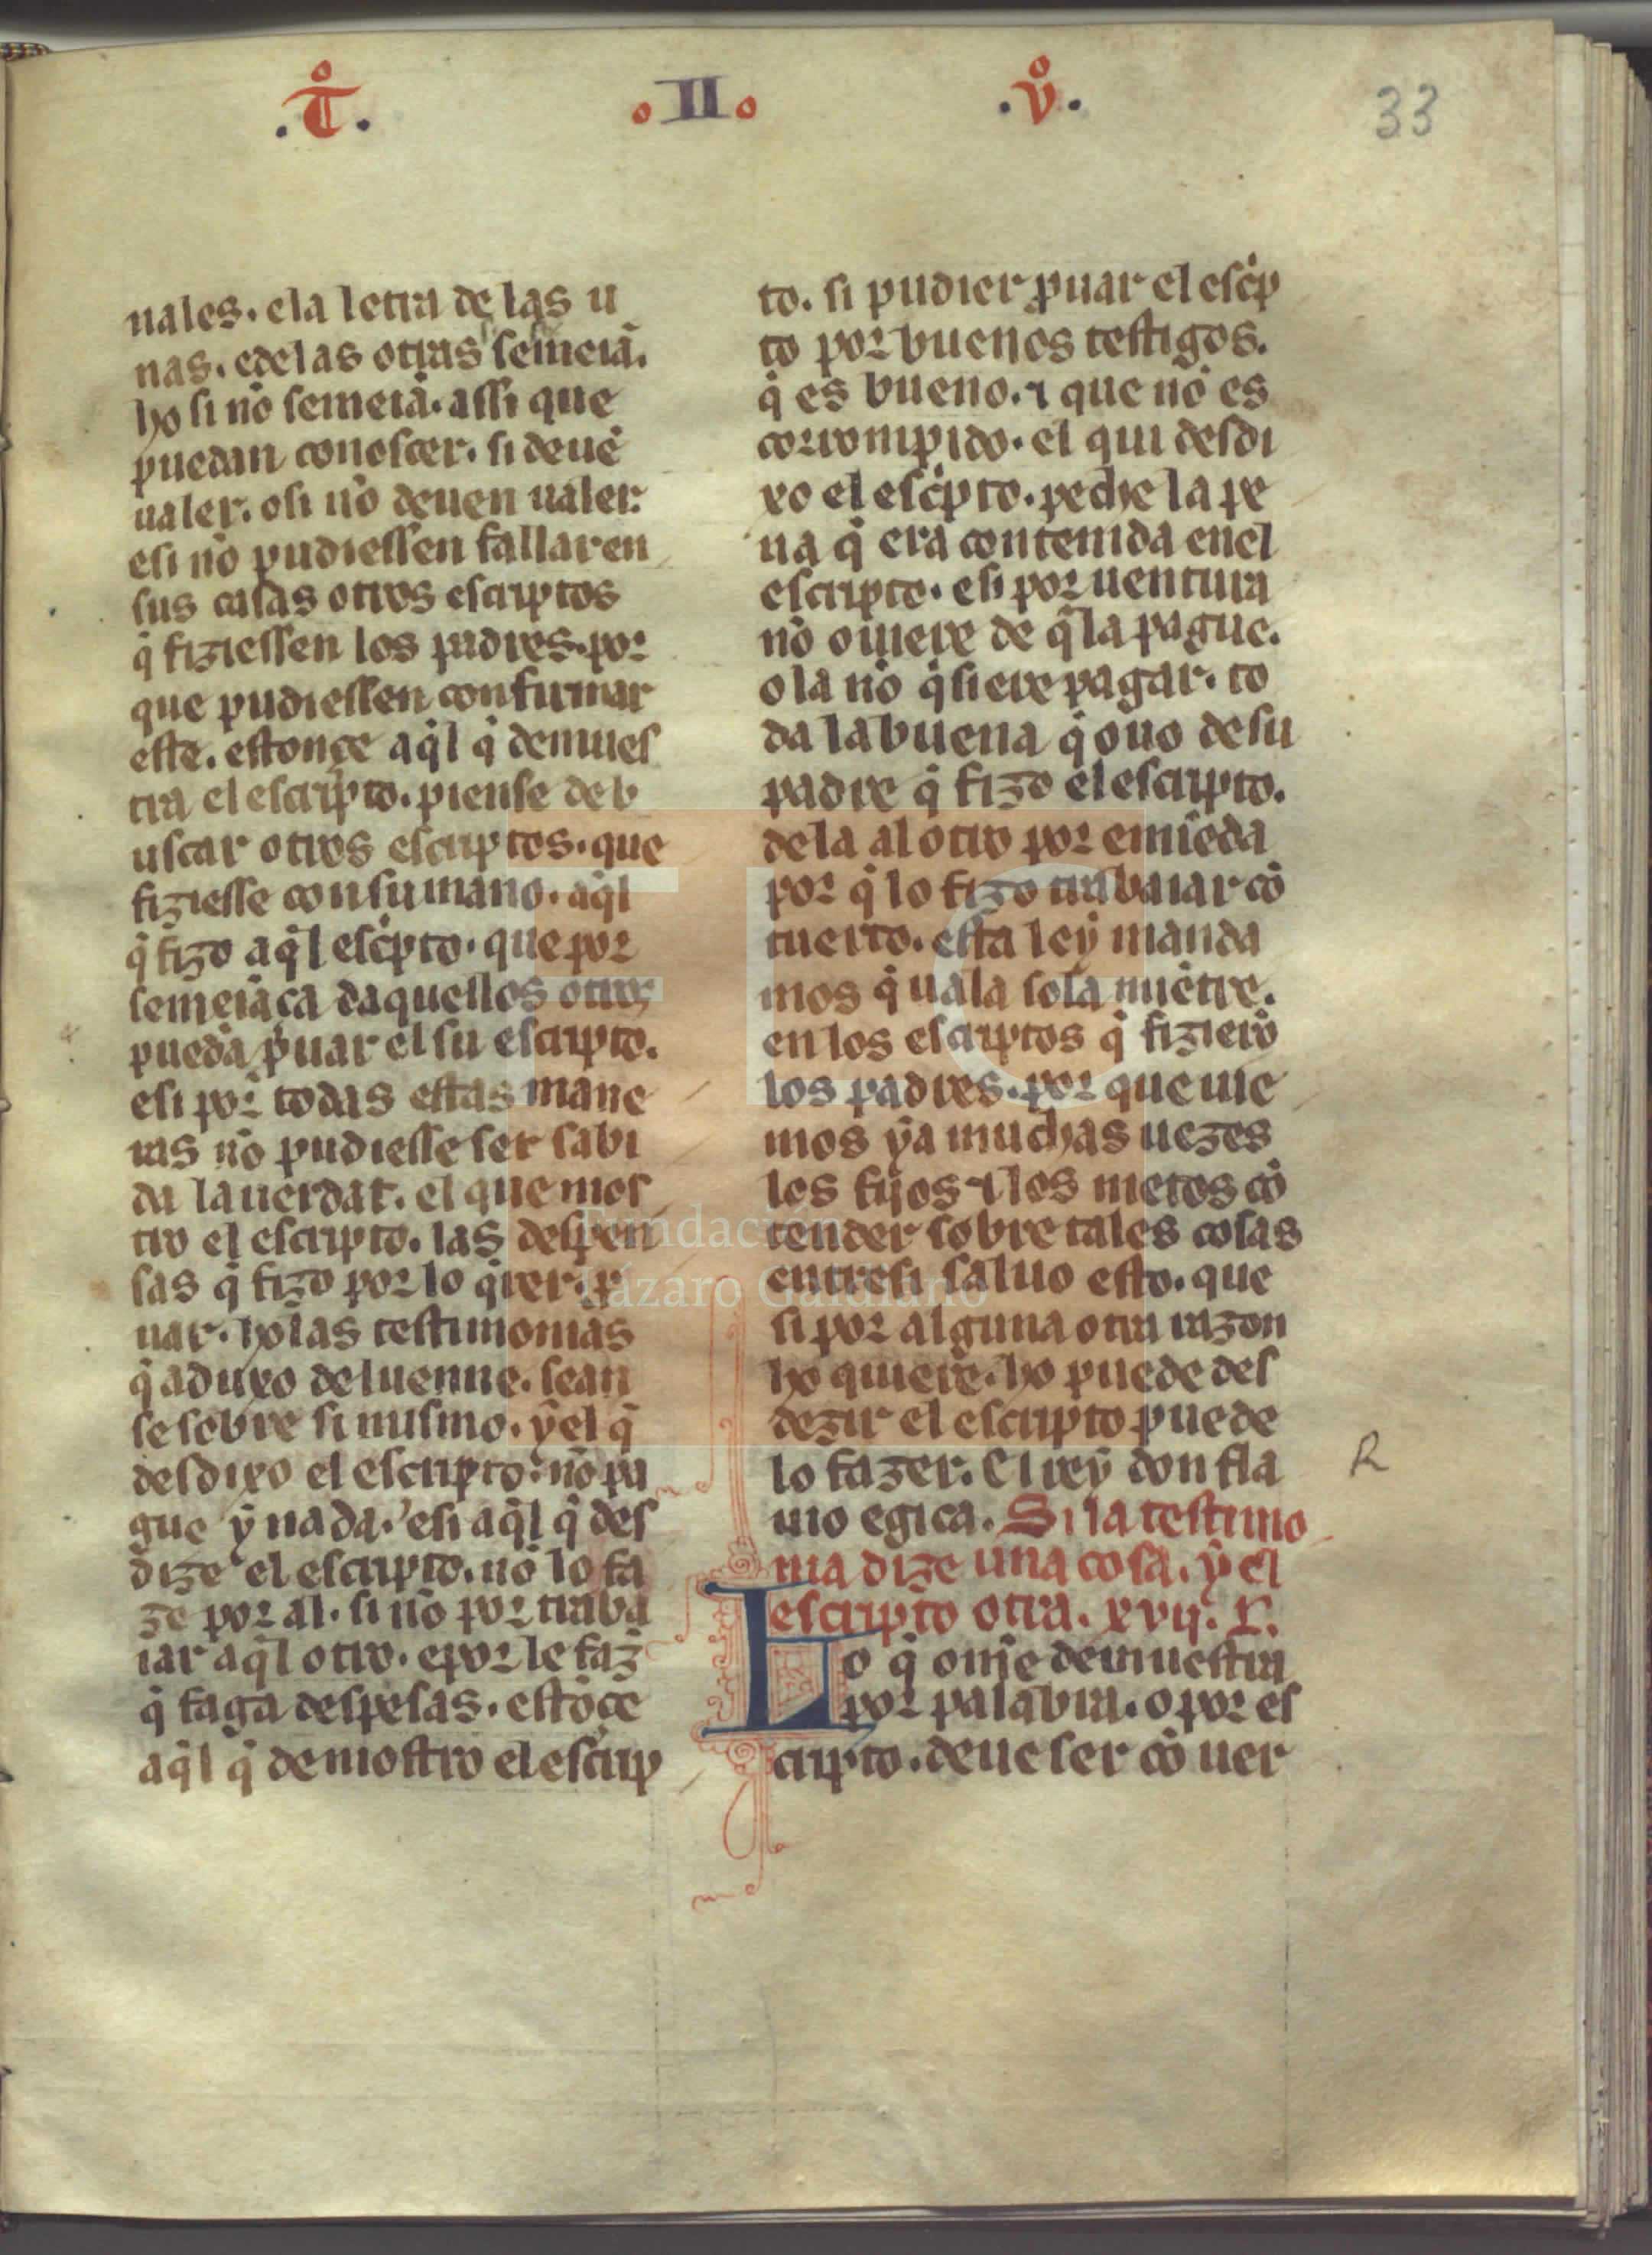 .T̊. .II. .v̊.
33
nales. e la letra de las u
nas. e de las otras semeiã.
ho si nõ semeiã. assi que
puedan conoscer. si deuẽ
ualer. o si nõ deuen ualer.
e si nõ pudiessen fallar en
sus casas otros escriptos
q̃ fiziessen los padres. por
que pudiessen confirmar
este. estonçe aq̃l q̃ demues
tra el escripto. piense de b
uscar otros escriptos. que
fiziesse con su mano. aq̃l
q̃ fizo aq̃l esc̃pto. que por
semeiãça daquellos otros
puedã p̃uar el su escripto.
e si por todas estas mane
ras nõ pudiesse ser sabi
da la uerdat. el que mos
tro el escripto. las despen
sas q̃ fizo por lo q̃rer p̃
uar. ho las testimonias
q̃ aduxo de luenne. sean
se sobre si mismo. ẏ el q̃
desdixo el escripto: nõ pa
gue ẏ nada. e si aq̃l q̃ des
dize el escripto. nõ lo fa
ze por al. si nõ por traba
iar aq̃l otro. e por le faz̃
q̃ faga despesas. estõçe
aq̃l q̃ demostro el escrip
to. si pudier p̃uar el esc̃p
to por buenos testigos.
q̃ es bueno. ⁊ que nõ es
corrompido. el qui desdi
xo el esc̃pto. peche la pe
na q̃ era contenida en el
escripto. e si por uentura
nõ ouiere de q̃ la pague.
o la nõ q̃siere pagar. to
da la buena q̃ ouo de su
padre q̃ fizo el escripto.
de la al otro por emiẽda
por q̃ lo fizo trabaiar cõ
tuerto. esta leẏ manda
mos q̃ uala sola miẽtre.
en los escriptos q̃ fizierõ
los padres. por que uie
mos ẏa muchas uezes
los fijos ⁊ los nietos cõ
tender sobre tales cosas
entre si saluo esto. que
si por alguna otra razon
ho quiere. ho puede des
dezir el escripto puede
lo fazer. El reẏ don fla
uio egica. Si la testimo
nia dize una cosa. ẏ el
escripto otra. xvij. L̃.
Lo q̃ omẽ demuestra
por palabra. o por es
cripto. deue ser cõ uer
R
Fundación
Lázaro Galdiano